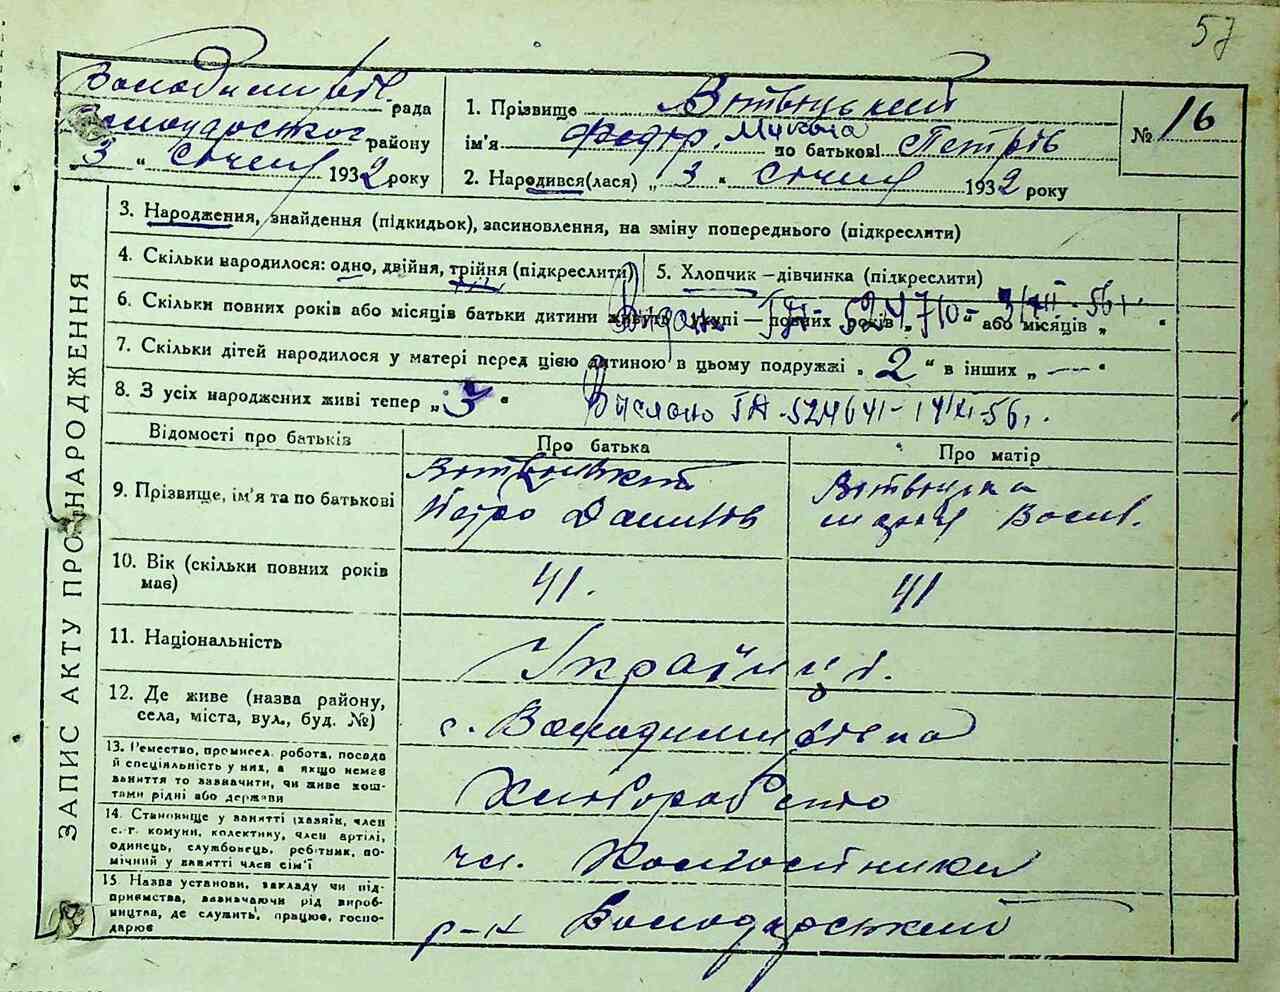 57
Володимирів. рада
Володарського району
" 3 " Січня 1932 року
1. Прізвище Вітвіцький
ім'я Федір, Микола по батькові Петрів
2. Народився(лася) " 3 " Січня 1932 року
№ 16
ЗАПИС АКТУ ПРО НАРОДЖЕННЯ
3. Народження, знайдення (підкидьок), засиновлення, на зміну попереднього (підкреслити)
4. Скільки народилося: одно, двійня, трійня (підкреслити)
5. Хлопчик—дівчинка (підкреслити)
6. Скільки повних років або місяців батьки дитини живуть вкупі — повних років " " або місяців " "
7. Скільки дітей народилося у матері перед цією дитиною в цьому подружжі " 2 " в інших " — "
8. З усіх народжених живі тепер " 3 "
Відомості про батьків
Про батька
Про матір
9. Прізвище, ім'я та по батькові
Вітвіцький
Петро Данилів
Вітвіцька
Васил.
10. Вік (скільки повних років має)
41.
41
11. Національність
Українці.
12. Де живе (назва району, села, міста, вул., буд. №)
с. Володимирівка
13. Ремество, промисел. робота, посада й спеціяльність у них, а якщо немає заняття то зазначити, чи живе коштами рідні або держави
Хліборобство
14. Становище у занятті (хазяїн, член с.-г. комуни, колективу, член артілі, одинець, службовець, робітник, помічний у занятті член сім'ї
чл. Колгоспники
15. Назва установи, закладу чи підприємства, зазначаючи рід виробництва, де служить, працює, господарює
р-н Володарський